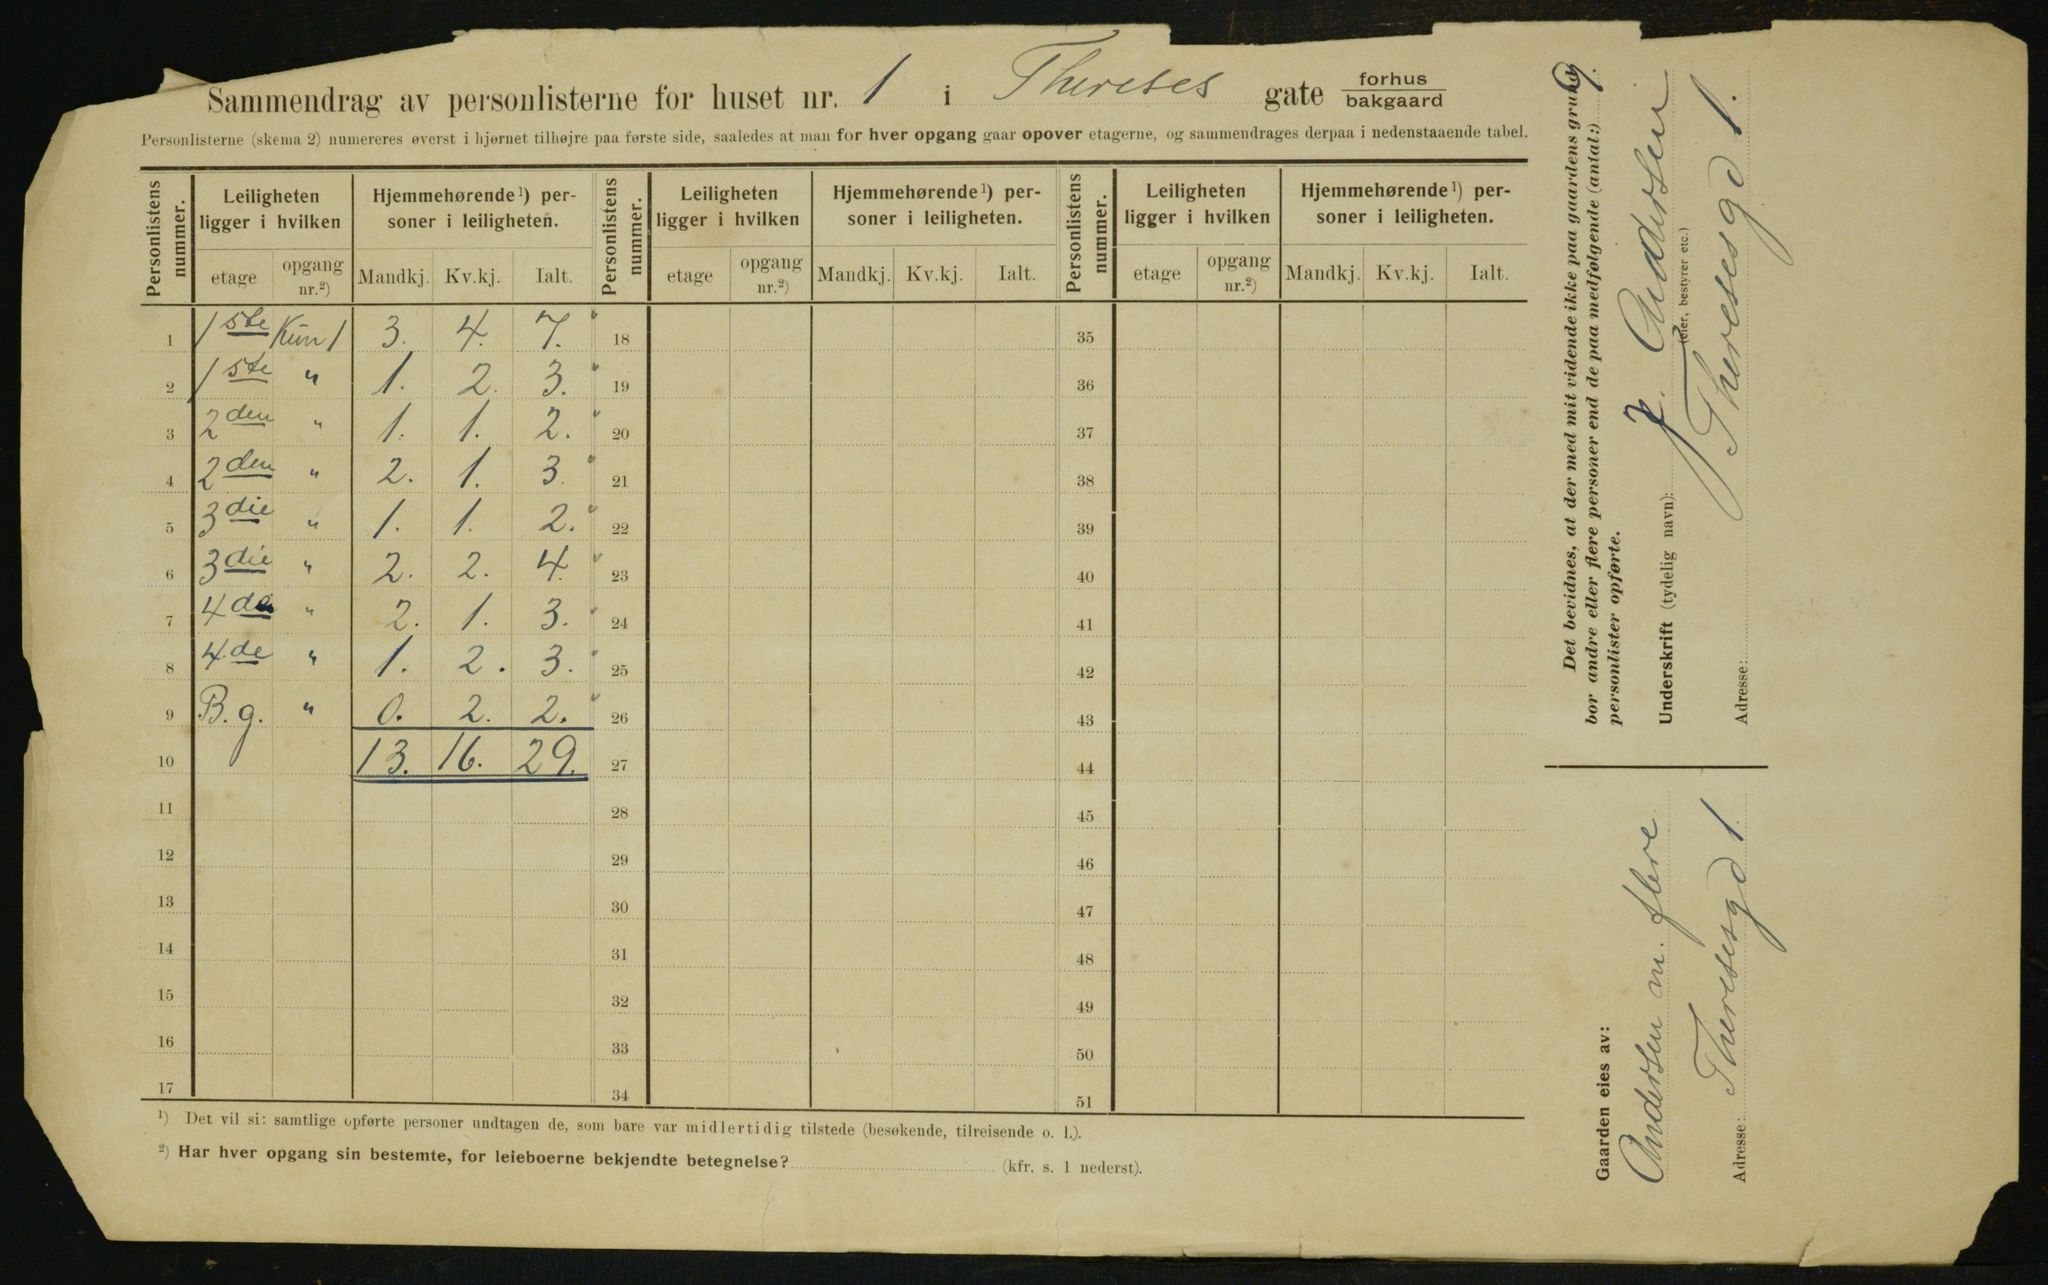 Sammendrag av personlisterne for huset nr. 1 i Thereses gate forhus
bakgaard
Personlisterne (skema 2) numereres øverst i hjørnet tilhøjre paa første side, saaledes at man for hver opgang gaar opover etagerne, og sammendrages derpaa i nedenstaaende tabel.
Personlistens nummer. Leiligheten ligger i hvilken Hjemmehørende¹) personer i leiligheten. Personlistens nummer. Leiligheten ligger i hvilken Hjemmehørende¹) personer i leiligheten. Personlistens nummer. Leiligheten ligger i hvilken Hjemmehørende¹) personer i leiligheten.
etage opgang nr.²) Mandkj. Kv.kj. Ialt. etage opgang nr.²) Mandkj. Kv.kj. Ialt. etage opgang nr.²) Mandkj. Kv.kj. Ialt.
1 1ste Kun 1 3. 4. 7. 18 35
2 1ste " 1. 2. 3. 19 36
3 2den " 1. 1. 2. 20 37
4 2den " 2. 1. 3. 21 38
5 3die " 1. 1. 2. 22 39
6 3die " 2. 2. 4. 23 40
7 4de " 2. 1. 3. 24 41
8 4de " 1. 2. 3. 25 42
9 B.g. " 0. 2. 2. 26 43
10 13. 16. 29. 27 44
11 28 45
12 29 46
13 30 47
14 31 48
15 32 49
16 33 50
17 34 51
¹) Det vil si: samtlige opførte personer undtagen de, som bare var midlertidig tilstede (besøkende, tilreisende o. l.).
²) Har hver opgang sin bestemte, for leieboerne bekjendte betegnelse? (kfr. s. 1 nederst).
Det bevidnes, at der med mit vidende ikke paa gaardens grund
bor andre eller flere personer end de paa medfølgende (antal:) 9.
personlister opførte.
Underskrift (tydelig navn): J. Andersen
(eier, bestyrer etc.)
Adresse: Theresesgd 1.
Gaarden eies av:
Andersen m. flere
Adresse: Theresesgd 1.